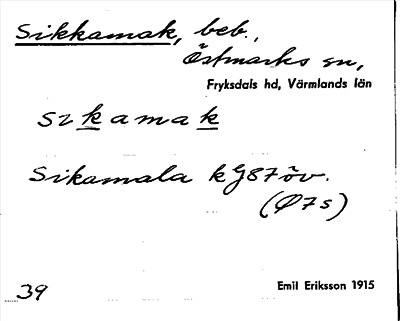 Sikkamak, beb.,
Östmarks sn,
Fryksdals hd, Värmlands län
sikamak
Sikamala kG87öv.
(Ø7s)
39
Emil Eriksson 1915